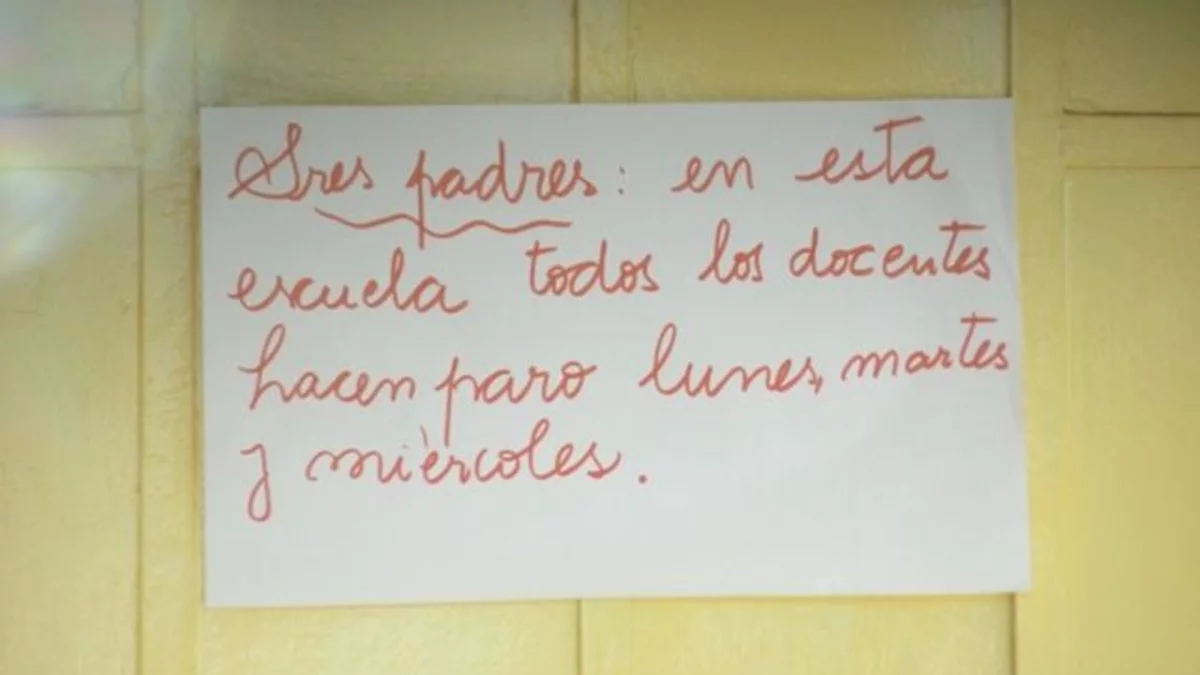 Sres padres: en esta
escuela todos los docentes
hacen paro lunes, martes
y mièrcoles.